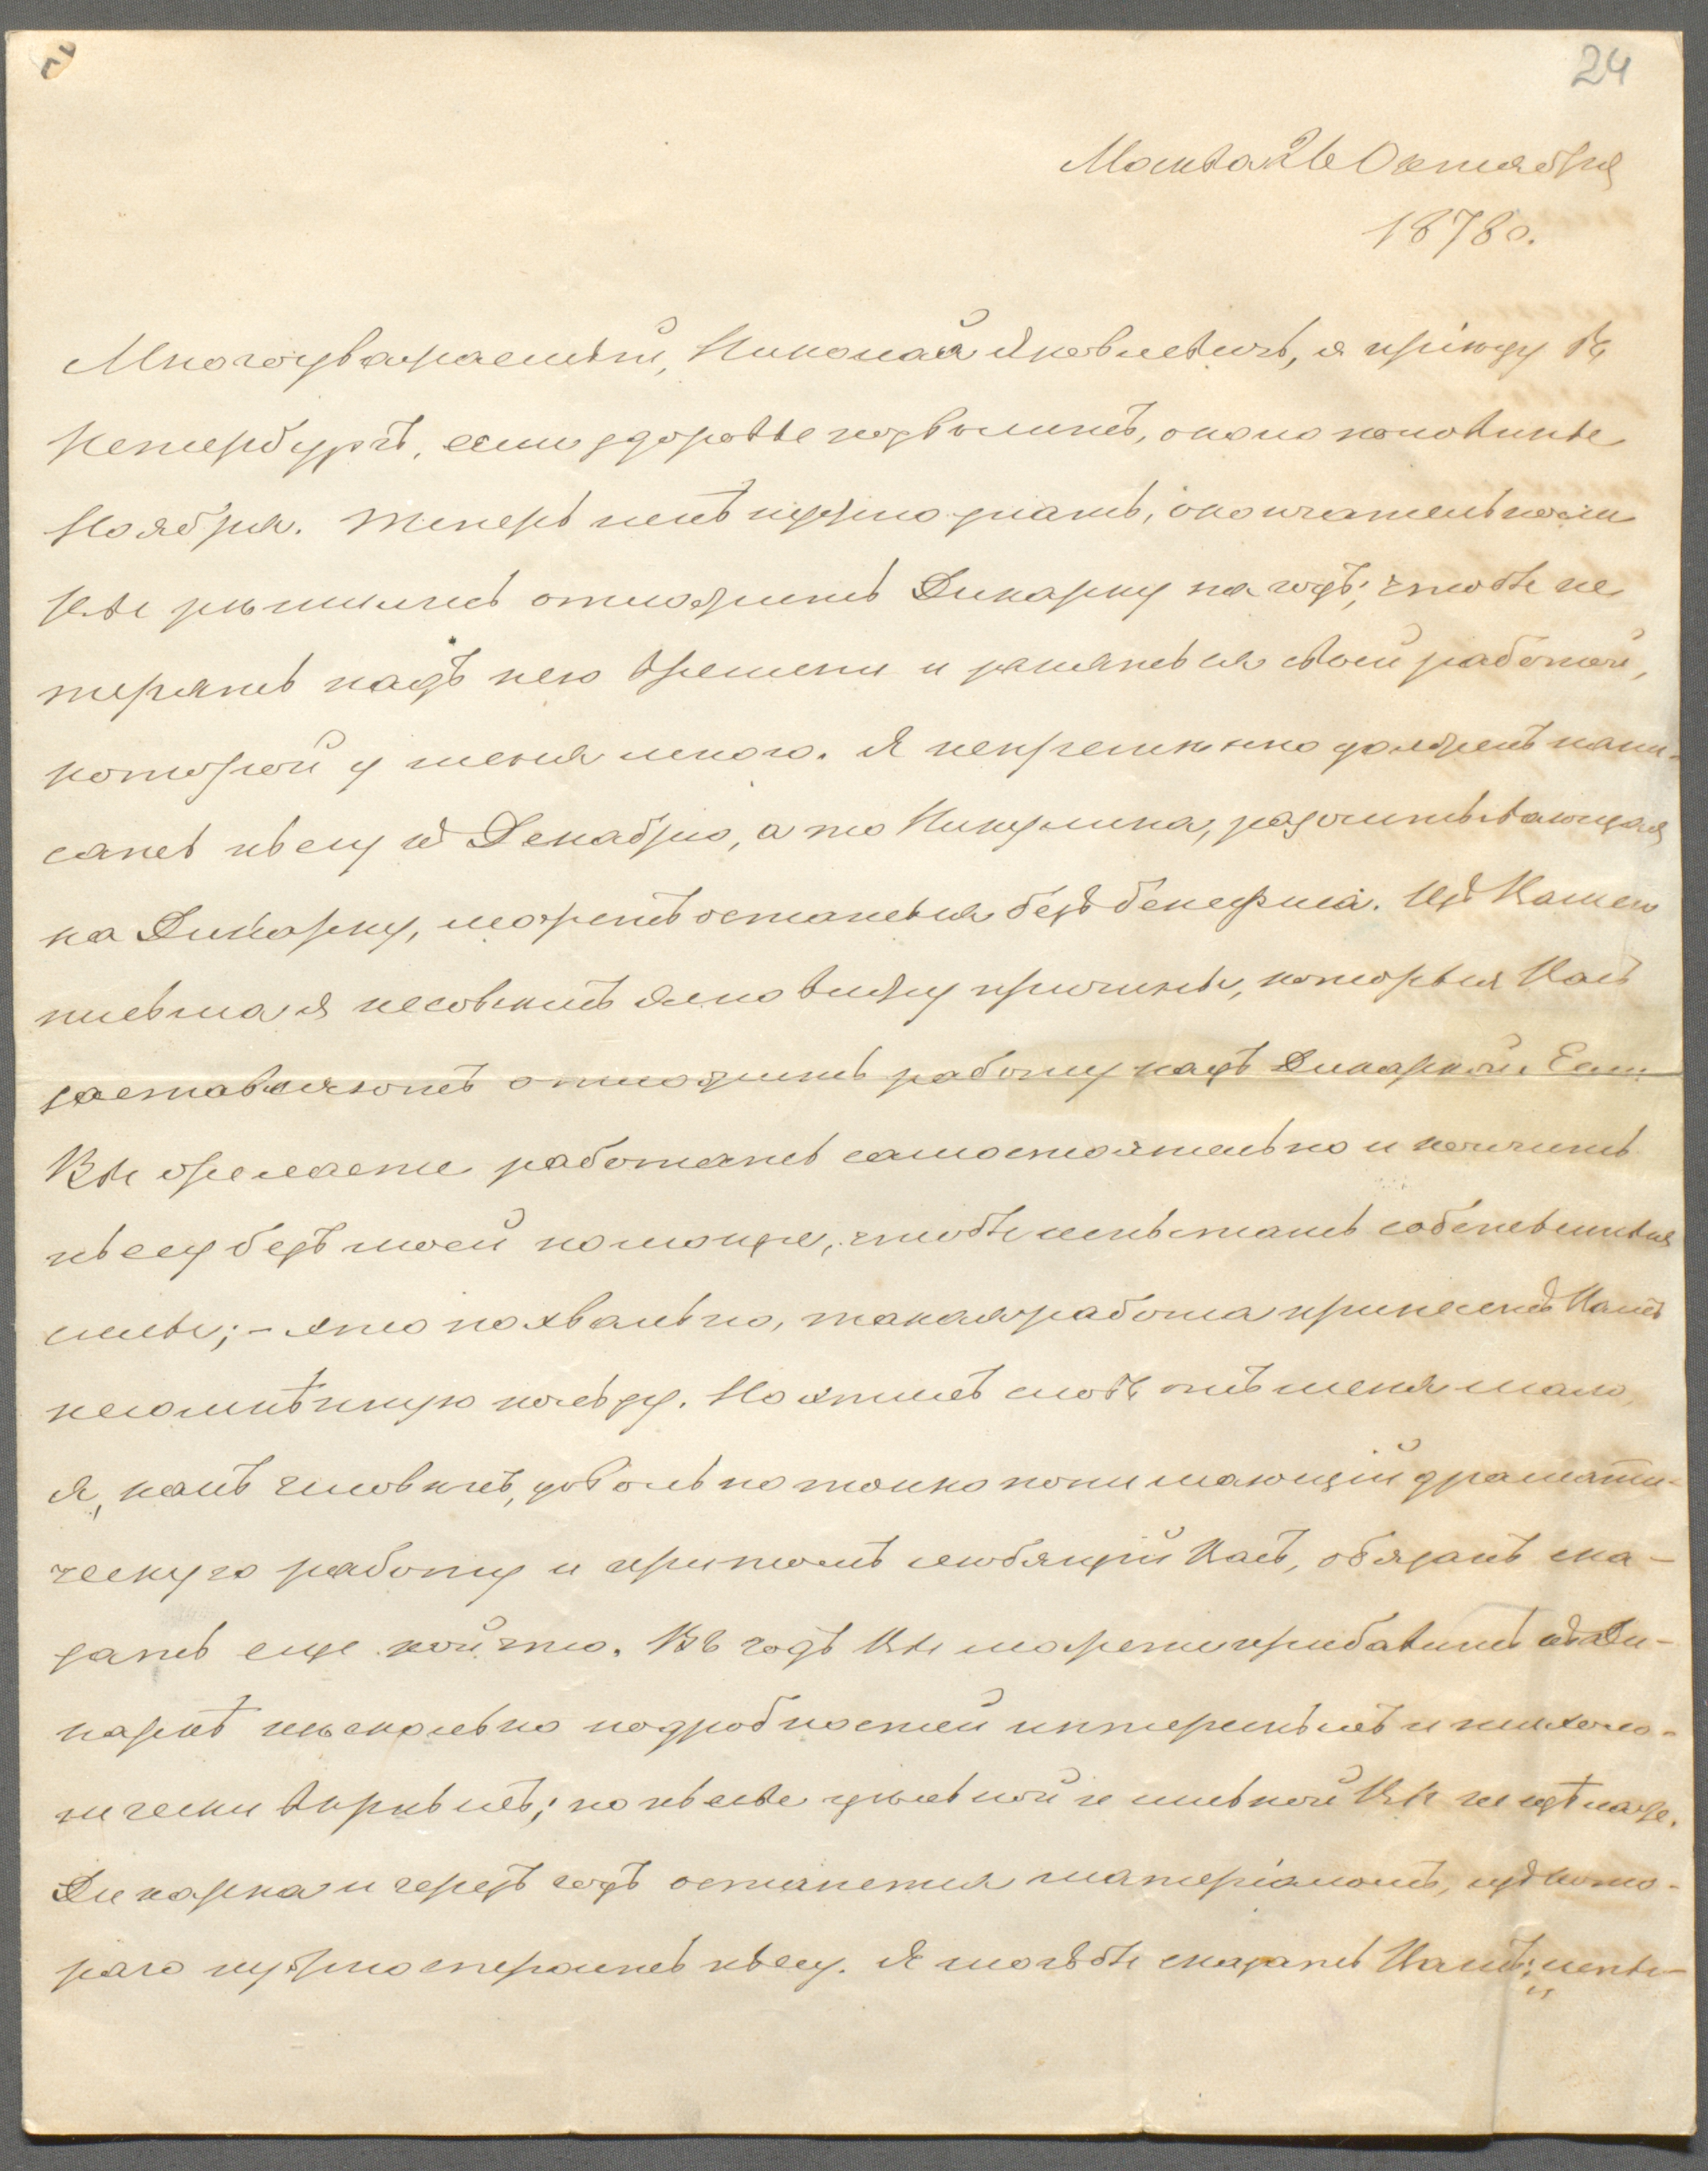 24
Москва 26 Октября
1878 г.
Многоуважаемый, Николай Яковлевич, я пріеду въ
Петербургъ, если здоровье позволитъ, около половины
Ноября. Теперь мнѣ нужно знать, окончательно ли
Вы рѣшились отложить Дикарку на годъ; чтобы не
терять надъ нею времени и заняться своей работой,
которой у меня много. Я непремѣнно долженъ напи-
сать пьесу къ Декабрю, а то Никулина, разсчитывающая
на Дикарку, можетъ остаться безъ бенефиса. Изъ Вашего
письма я несовсѣмъ ясно вижу причины, которыя Васъ
заставляютъ отложить работу надъ Дикаркой. Если
Вы желаете работать самостоятельно и кончить
пьесу безъ моей помощи, чтобы испытать собственныя
силы; – это похвально, такая работа принесетъ Вамъ
несомнѣнную пользу. Но этихъ словъ отъ меня мало,
я, какъ человѣкъ, довольно тонко понимающій драмати-
ческую работу и притомъ любящій Васъ, обязанъ ска-
зать еще кой что. Въ годъ Вы можете прибавить къ Ди-
каркѣ нѣсколько подробностей интересныхъ и психоло-
гически вѣрныхъ; но пьесы цѣльной и сильной Вы не сдѣлаете.
Дикарка и черезъ годъ останется матеріаломъ, изъ кото-
раго нужно строить пьесу. Я могъ бы сказать Вамъ: